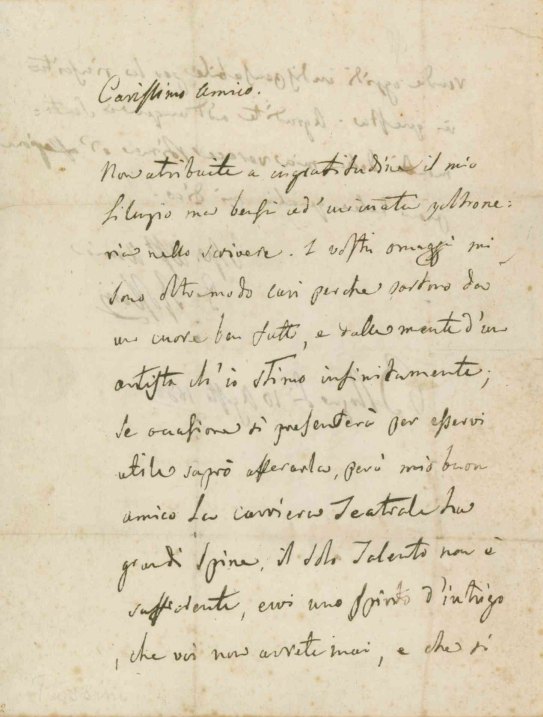 Carissimo Amico.
Non atribuite a ingratitudine il mio
silenzio ma bensì ad'innata poltrone=
ria nello scrivere. I vostri omaggi mi
sono oltremodo cari perche sortono da
un cuore ben fatto, e dalla mente d'un
artista ch'io stimo infinitamente;
se occasione si presenterà per esservi
utile saprò afferarla, però mio buon
amico La carriera Teatrale ha
grandi spine, il solo Talento non è
sufficiente, evvi uno spirito d'intrigo
, che voi non avrete mai, e che si